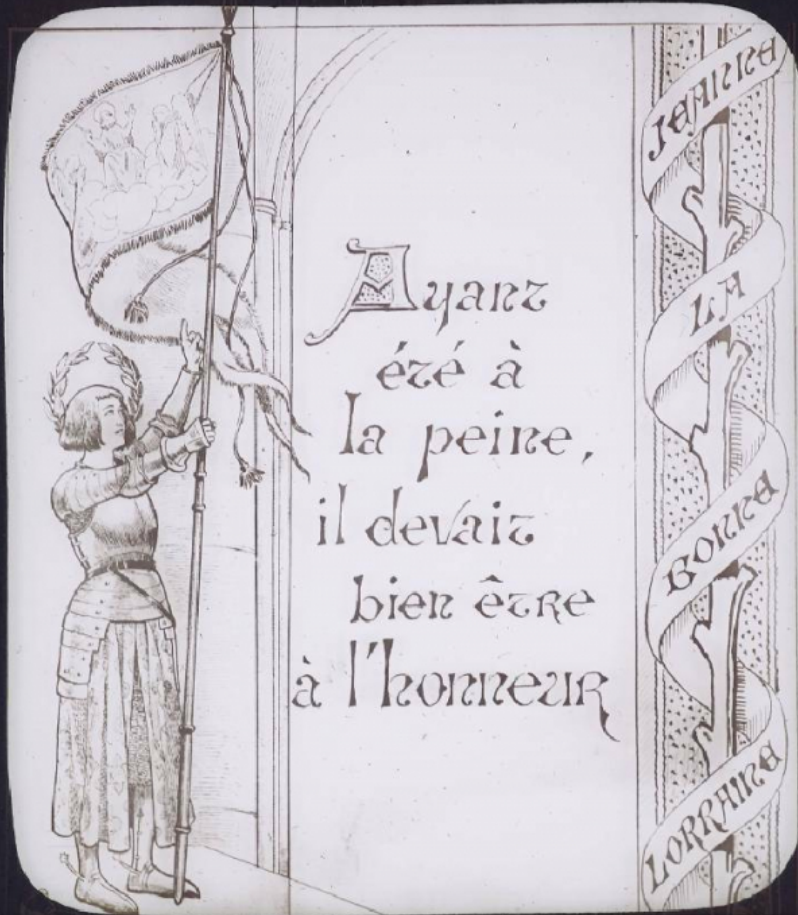 Ayant
été à
la peine,
il devait
bien être
à l'honneur
JEANNE
LA
BONNE
LORRAINE